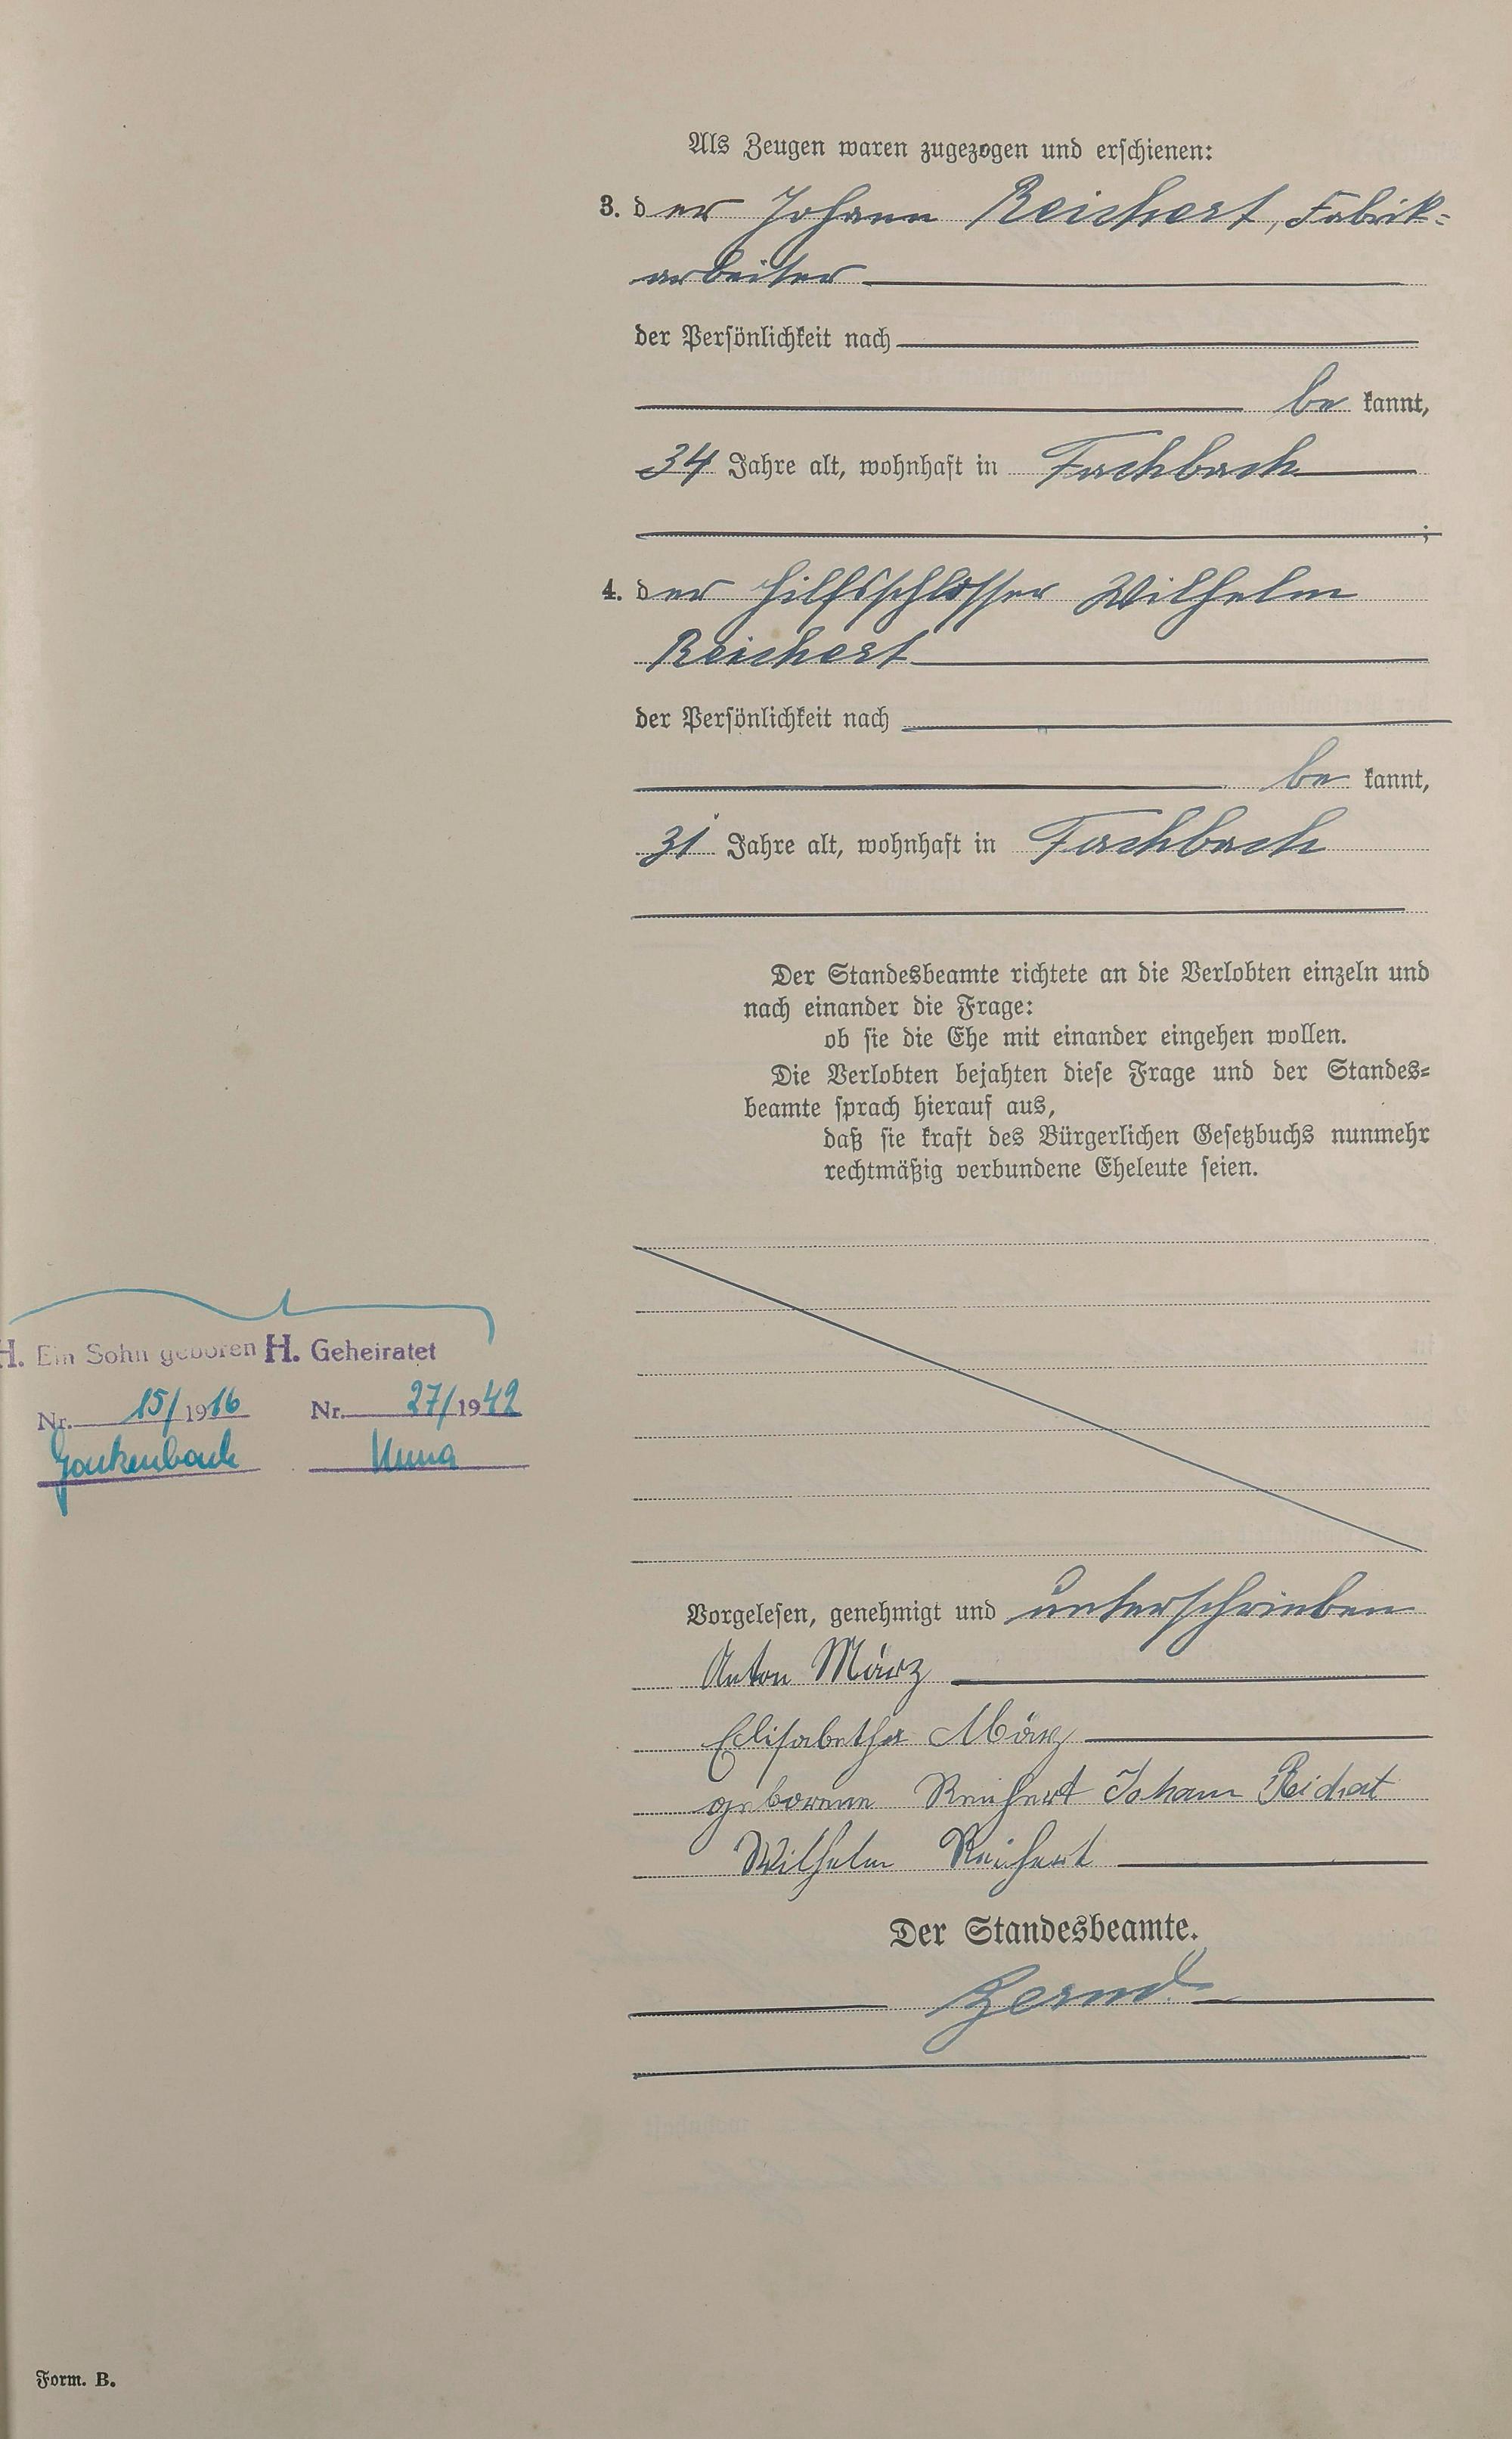 Als Zeugen waren zugezogen und erschienen:
3. der Johann Reichert, Fabrik=
arbeiter
der Persönlichkeit nach
be kannt,
34 Jahre alt, wohnhaft in Fachbach
;
4. der Hilfsschlosser Wilhelm
Reichert
der Persönlichkeit nach
be kannt,
31 Jahre alt, wohnhaft in Fachbach
Der Standesbeamte richtete an die Verlobten einzeln und
nach einander die Frage:
ob sie die Ehe mit einander eingehen wollen.
Die Verlobten bejahten diese Frage und der Standes=
beamte sprach hierauf aus,
daß sie kraft des Bürgerlichen Gesetzbuchs nunmehr
rechtmäßig verbundene Eheleute seien.
H. Ein Sohn geboren H. Geheiratet
Nr. 15/1916 Nr. 27/1942
Unna
Vorgelesen, genehmigt und unterschrieben
Anton März
Elisabetha März
geborene Reichert Johann Reichert
Wilhelm Reichert
Der Standesbeamte.
Form. B.